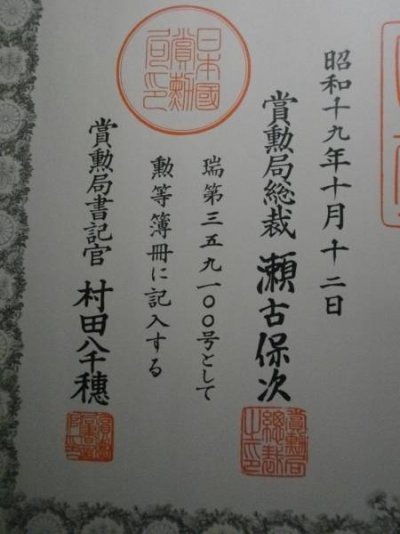 昭和十九年十月十二日
賞勲局総裁 瀬古保次
瑞第三五九一〇〇号として
勲等簿冊に記入する
賞勲局書記官 村田八千穂
日本國
賞勳
局印
賞勲局
總裁
之印